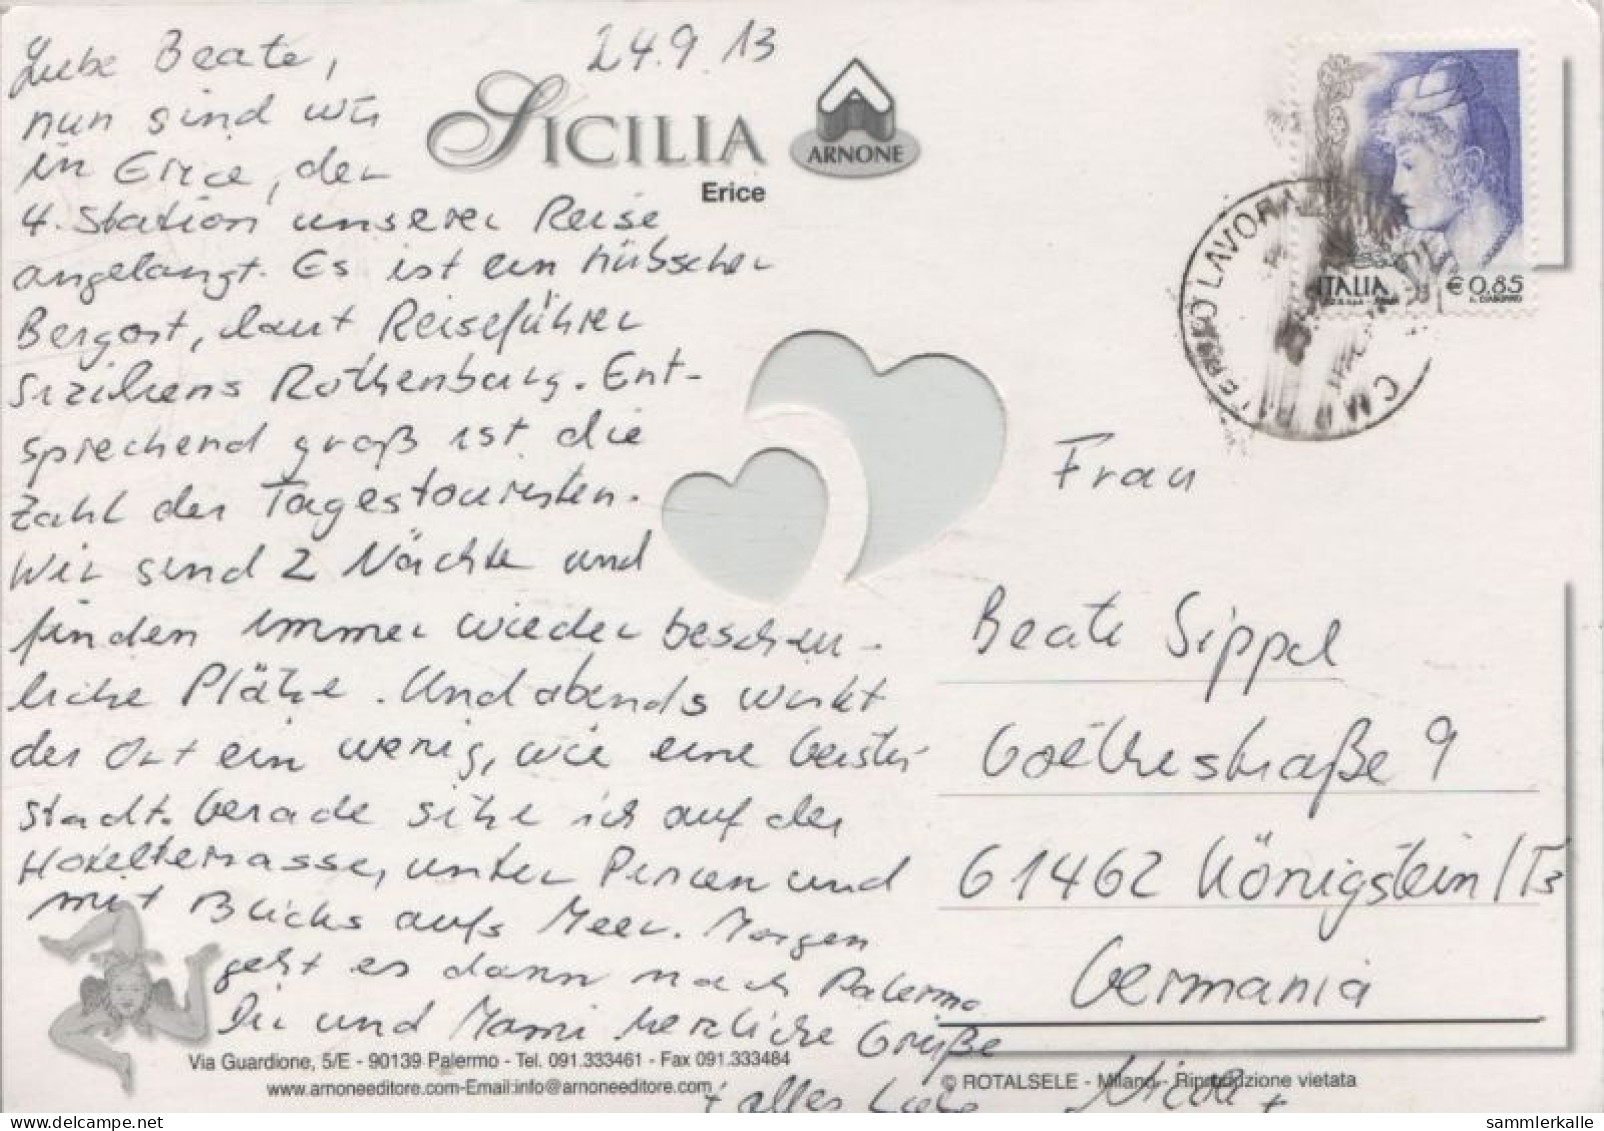 24.9.13
Liebe Beate,
nun sind wir
in Erice, der
4. Station unserer Reise
angelangt. Es ist ein hübscher
Bergort, laut Reiseführer
Siziliens Rothenburg. Ent-
sprechend groß ist die
Zahl der Tagestouristen.
Wir sind 2 Nächte und
finden immer wieder beschau-
liche Plätze. Und abends wirkt
der Ort ein wenig, wie eine Geister-
stadt. Gerade sitze ich auf der
Hotelterrasse, unter Pinien und
mit Blick aufs Meer. Morgen
geht es dann nach Palermo
Dir und Mami herzliche Grüße
+ alles Liebe
SICILIA
Erice
ARNONE
ITALIA
€ 0,85
Frau
Beate Sippel
Goethestraße 9
61462 Königstein/Ts
Germania
Via Guardione, 5/E - 90139 Palermo - Tel. 091.333461 - Fax 091.333484
www.arnoneeditore.com-Email:info@arnoneeditore.com
© ROTALSELE - Milano - Riproduzione vietata
sammlerkalle